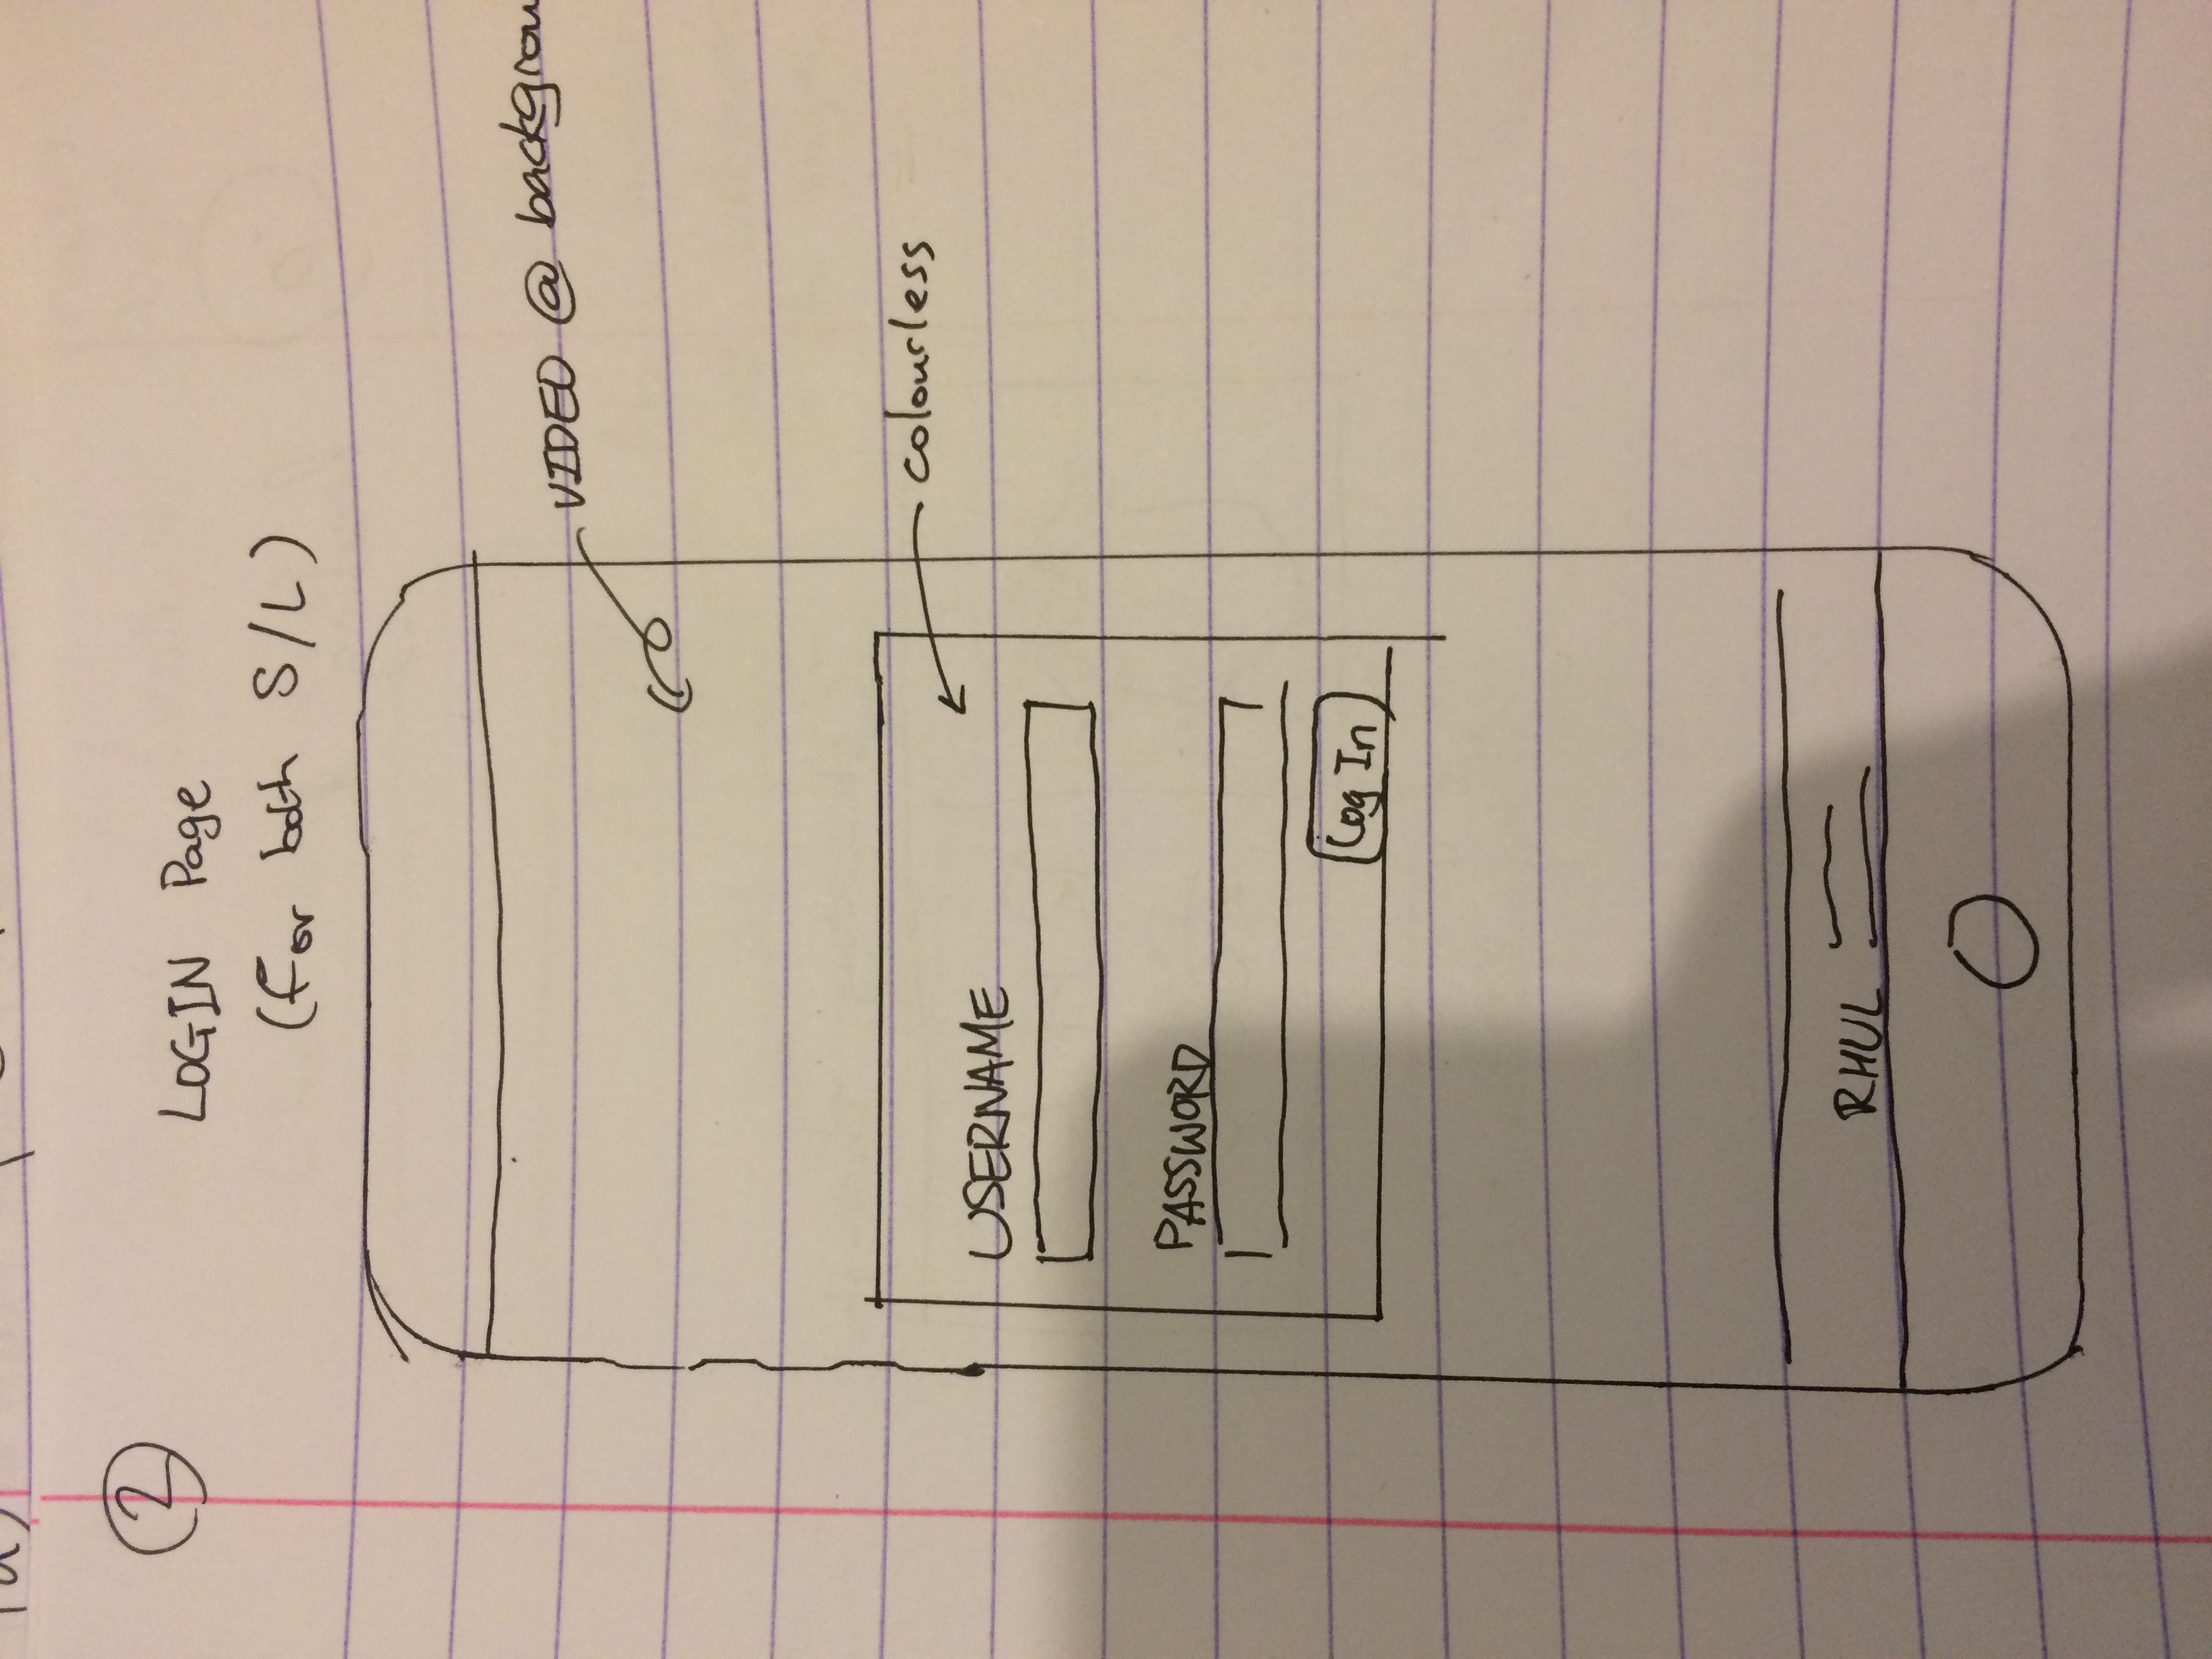 2
LOGIN Page
(For both S/L)
VIDEO @ backgrou
colourless
USERNAME
PASSWORD
Log In
RHUL